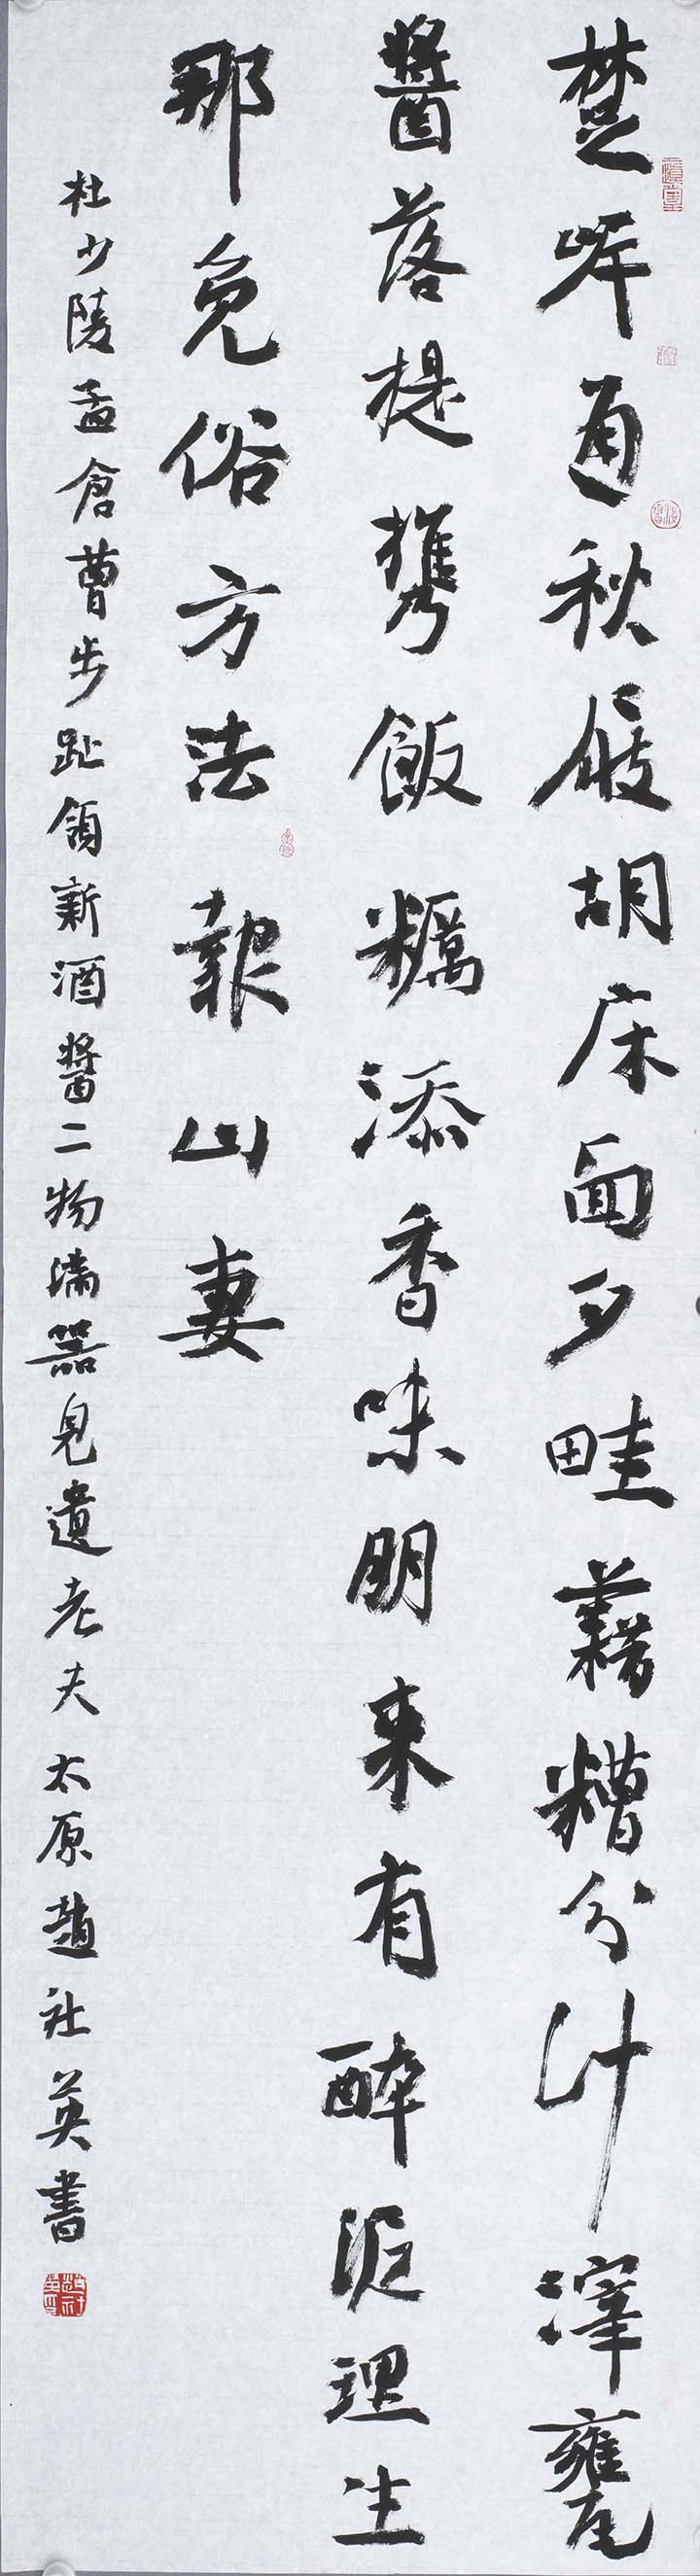 楚岸通秋屐胡床面夕畦藉糟分汁滓甕
醬落提攜飯糲添香味朋来有醉泥理生
那免俗方法報山妻
杜少陵孟倉曹步趾領新酒醬二物滿器見遺老夫太原趙社英書